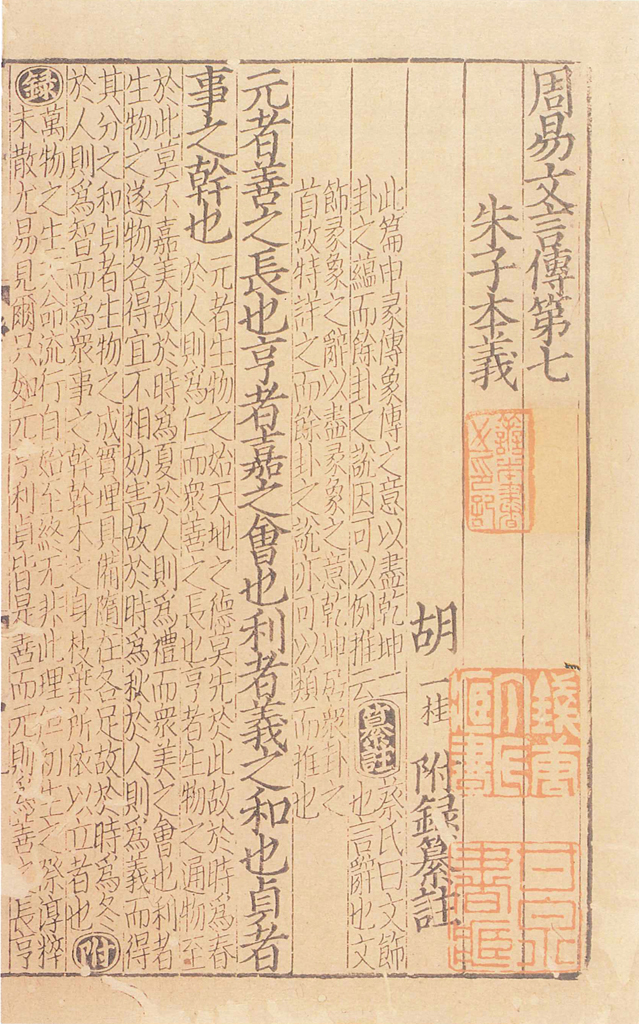 周易文言傳第七
朱子本義
胡一桂 附録纂註
此篇申彖傳象傳之意以盡乾坤二
卦之藴而餘卦之說因可以例推云 纂註 蔡氏曰文飾
也言辭也文
飾彖象之辭以盡彖象之意乾坤爲衆卦之
首故特詳之而餘卦之說亦可以類而推也
元者善之長也亨者嘉之會也利者義之和也貞者
事之幹也
元者生物之始天地之德莫先於此故於時爲春
於人則爲仁而衆善之長也亨者生物之通物至
於此莫不嘉美故於時爲夏於人則爲禮而衆美之會也利者
生物之遂物各得宜不相妨害故於時爲秋於人則爲義而得
其分之和貞者生物之成實理具備隨在各足故於時爲冬
於人則爲智而爲衆事之幹幹木之身枝葉所依以立者也 附
録
萬物之生天命流行自始至終无非此理但初生之際淳粹
未散尤易見爾只如元亨利貞皆是善而元則爲善之長亨